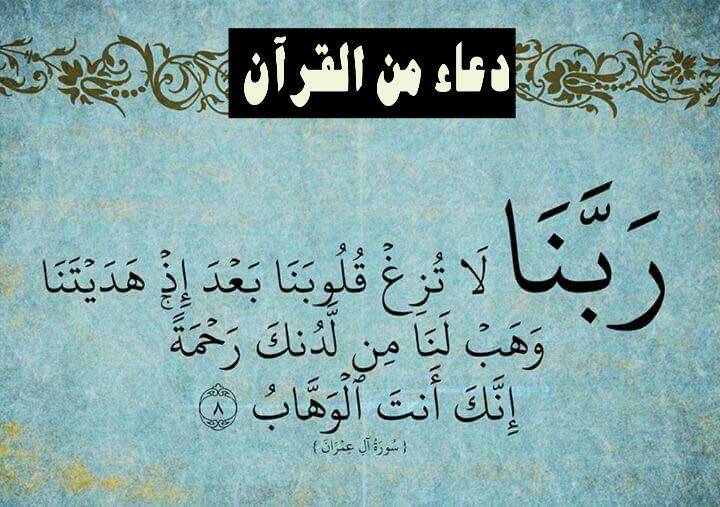 دعاء من القرآن
رَبَّنَا لَا تُزِغْ قُلُوبَنَا بَعْدَ إِذْ هَدَيْتَنَا
وَهَبْ لَنَا مِن لَّدُنكَ رَحْمَةً ۚ
إِنَّكَ أَنتَ ٱلْوَهَّابُ ٨
{ سُورَةُ آلِ عِمْرَانَ }